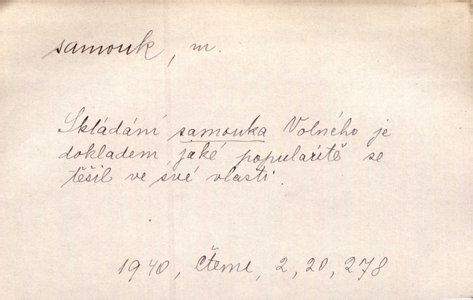 samouk, m.
Skládání samouka Volného je
dokladem, jaké popularitě se
těšil ve své vlasti.
1940, Čteme, 2, 20, 278